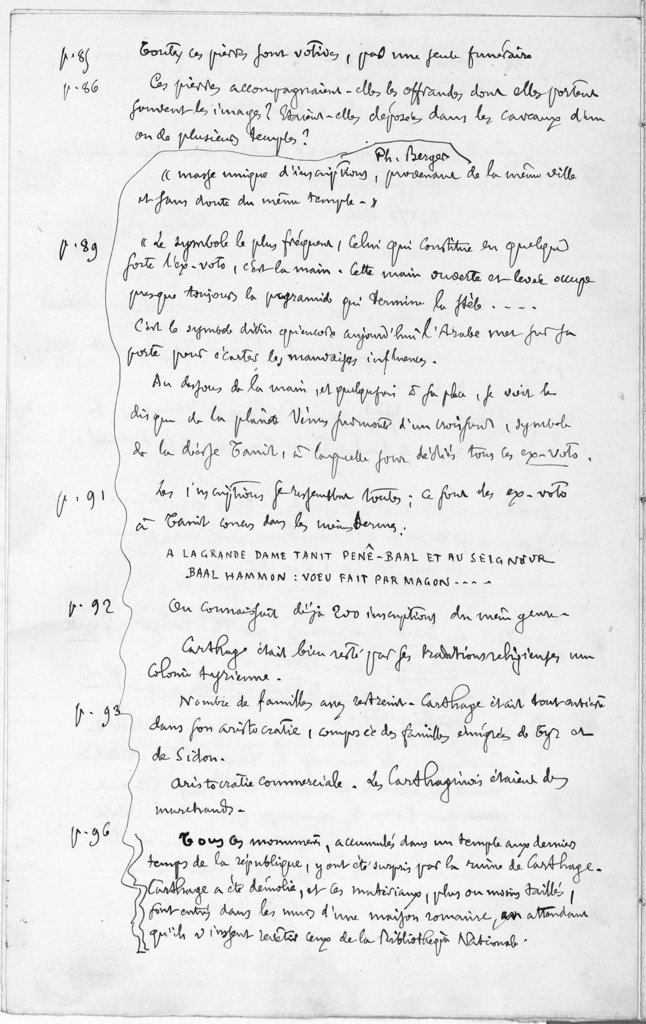 p. 85 Toutes ces pierres sont votives, pas une seule funéraire
p. 86 Ces pierres accompagnaient-elles les offrandes dont elles portent
souvent les images? Étaient-elles déposées dans les caveaux d'un
ou de plusieurs temples?
Ph. Berger
« masse unique d'inscriptions, provenant de la même ville
et sans doute du même temple - »
p. 89 « Le symbole le plus fréquent, celui qui constitue en quelque
sorte l'ex-voto, c'est la main. Cette main ouverte et levée occupe
presque toujours la pyramide qui termine la stèle ....
C'est le symbole divin qu'encore aujourd'hui l'Arabe met sur sa
porte pour écarter les mauvaises influences.
Au dessous de la main, et quelquefois à sa place, se voit le
disque de la planète Vénus surmonté d'un croissant, symbole
de la déesse Tanit, à laquelle sont dédiés tous ces ex-voto.
p. 91 Les inscriptions se ressemblent toutes; ce sont des ex-voto
à Tanit conçus dans les mêmes termes:
A LA GRANDE DAME TANIT PENÊ-BAAL ET AU SEIGNEUR
BAAL HAMMON : VOEU FAIT PAR MAGON ....
p. 92 On connaissait déjà 200 inscriptions du même genre.
Carthage était bien resté par ses traditions religieuses une
colonie tyrienne.
Nombre de familles assez restreint. Carthage était tout entière
p. 93 dans son aristocratie, composée des familles émigrées de Tyr et
de Sidon.
aristocratie commerciale. Les Carthaginois étaient des
marchands.
p. 96 Tous ces monuments, accumulés dans un temple aux derniers
temps de la république, y ont été surpris par la ruine de Carthage.
Carthage a été démolie, et les matériaux, plus ou moins taillés,
sont entrés dans les murs d'une maison romaine, en attendant
qu'ils vinssent revêtir ceux de la Bibliothèque Nationale.